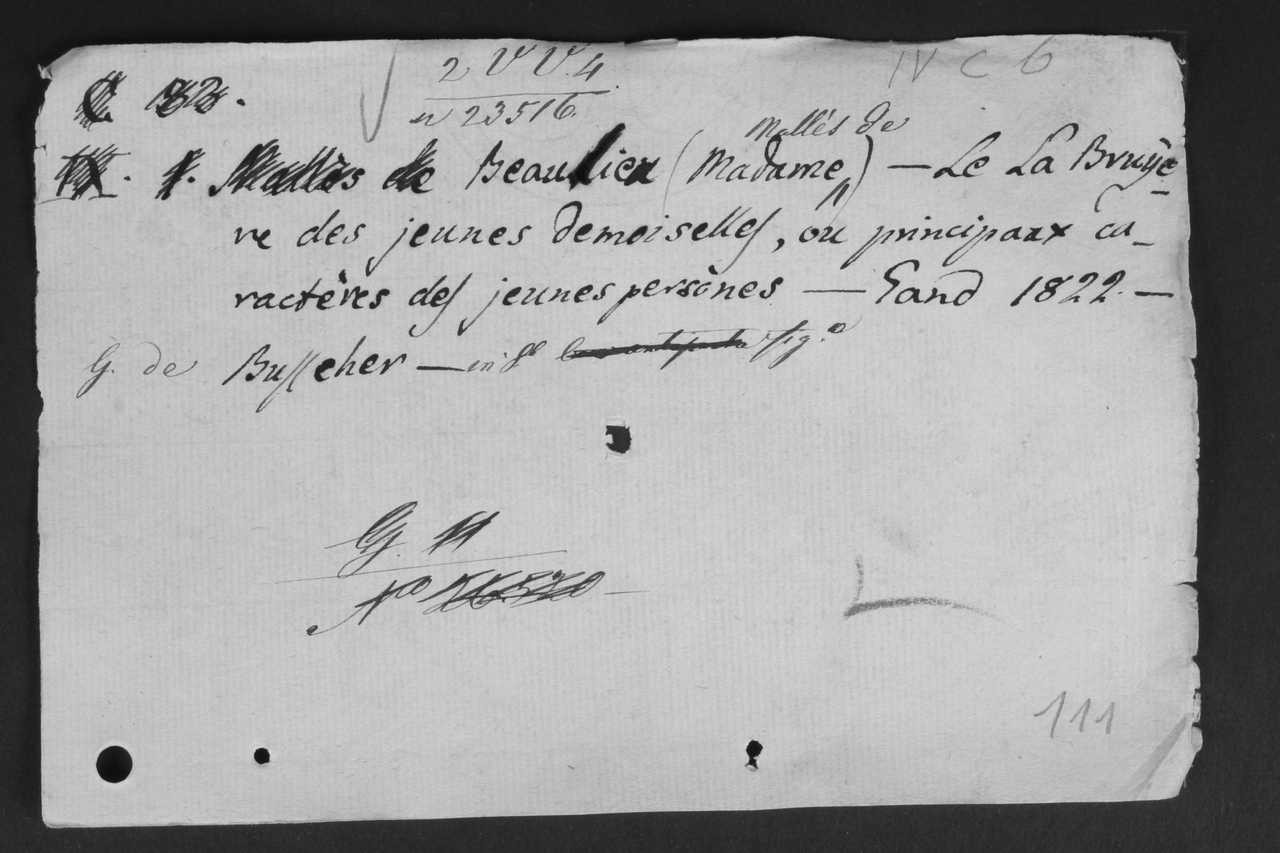 2 V V. 4
IV C 6
n 23516.
Mallés de
de Beaulieu (Madame) — Le La Bruyè-
re des jeunes demoiselles, ou principaux ca-
ractères des jeunes persones — Gand 1822. —
G. de Busscher — in 8° fig.a
G. 11
N°
111